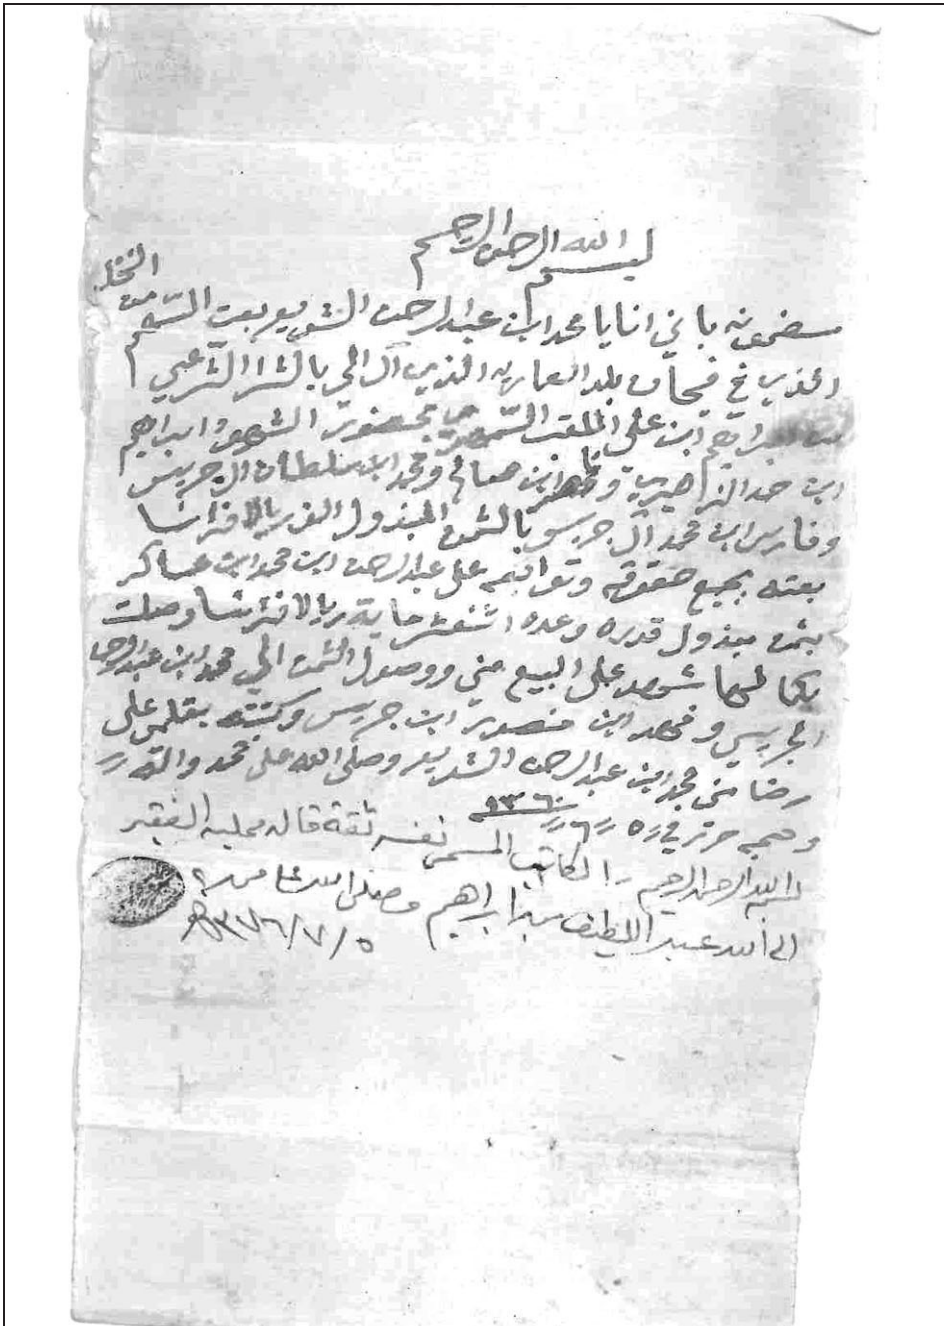 بسم الله الرحمن الرحيم
مضمونه باني انايا محمد ابن عبدالرحمن الشويعر بعت السهم من النخل
الذي في فيحان بلد العماريه الذي آل الي بالشرا الشرعي
من ابراهيم ابن علي الملقب بحضور الشهود ابراهيم
ابن حمد ابن صالح ومحمد ابن سلطان ال جريس
وفارس ابن محمد آل جريس بالثمن المبذول الف ريالا فرانسا
بعته بجميع حقوقه وتوابعه على عبدالرحمن ابن محمد ابن عساكر
بثمن مبذول قدره وعده اثنعشر ماية ريالا فرنسا وصلت
بكمالها شهد على البيع مني ووصول الثمن الي محمد ابن عبدالرحمن
الجريس وفهد ابن منصور ابن جريس وكتبته بقلمي على
رضا مني محمد ابن عبدالرحمن الشويعر وصلى الله على محمد واله
وصحبه حرر في ٥ ر ٦ ر ١٣٦٠
بسم الله الرحمن الرحيم الكاتب المسمى نفسه ثقة قاله ممليه الفقير
الى الله عبد اللطيف بن ابراهيم وصلى الله على محمد
٥/٧/١٣٧٦هـ